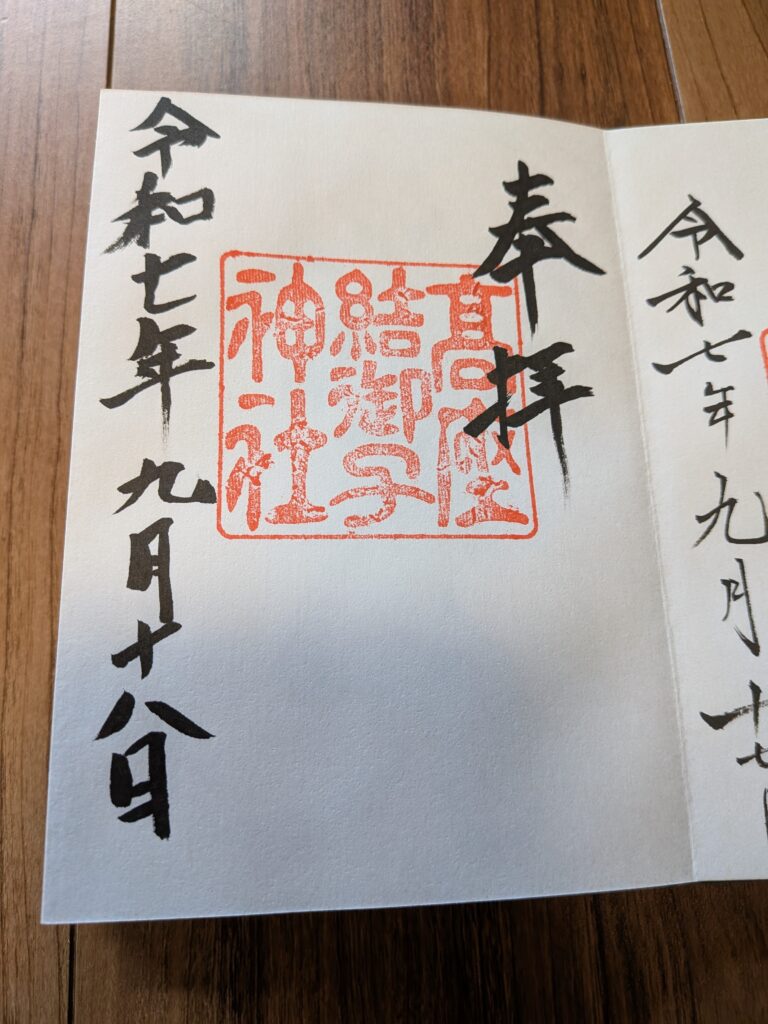 令和七年九月十七
奉拝
高座
結御子
神社
令和七年九月十八日